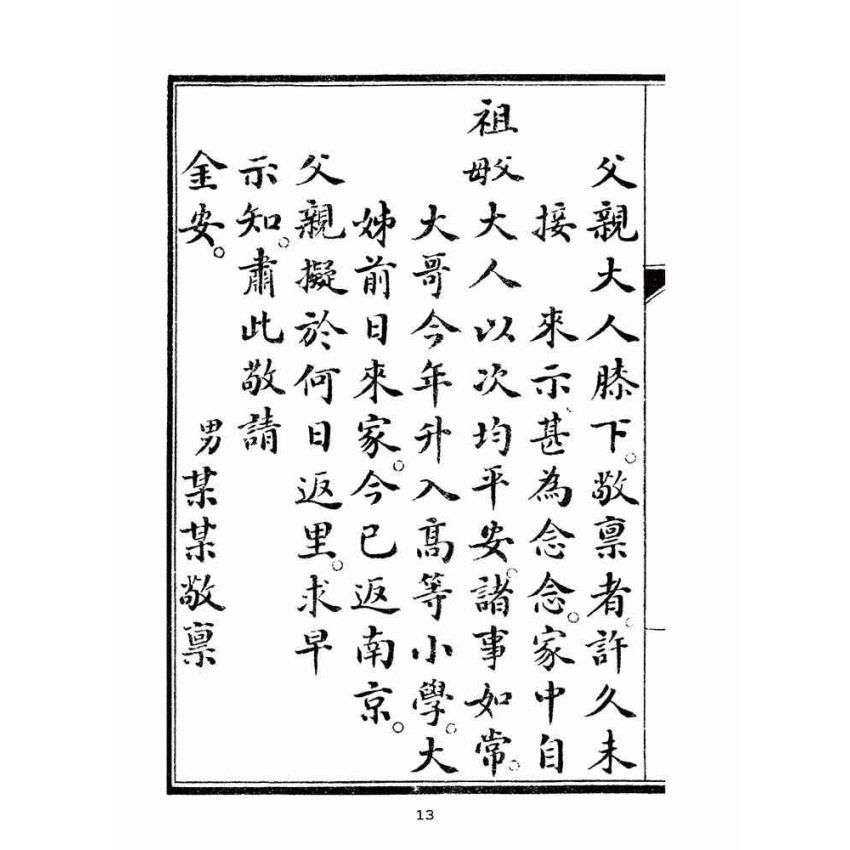 父親大人膝下。敬稟者。許久未
接 來示、甚為念念。家中自
祖父母大人以次均平安。諸事如常。
大哥今年升入高等小學。大
姊前日來家。今已返南京。
父親擬於何日返里。求早
示知。肅此敬請
金安。
男某某敬稟
13